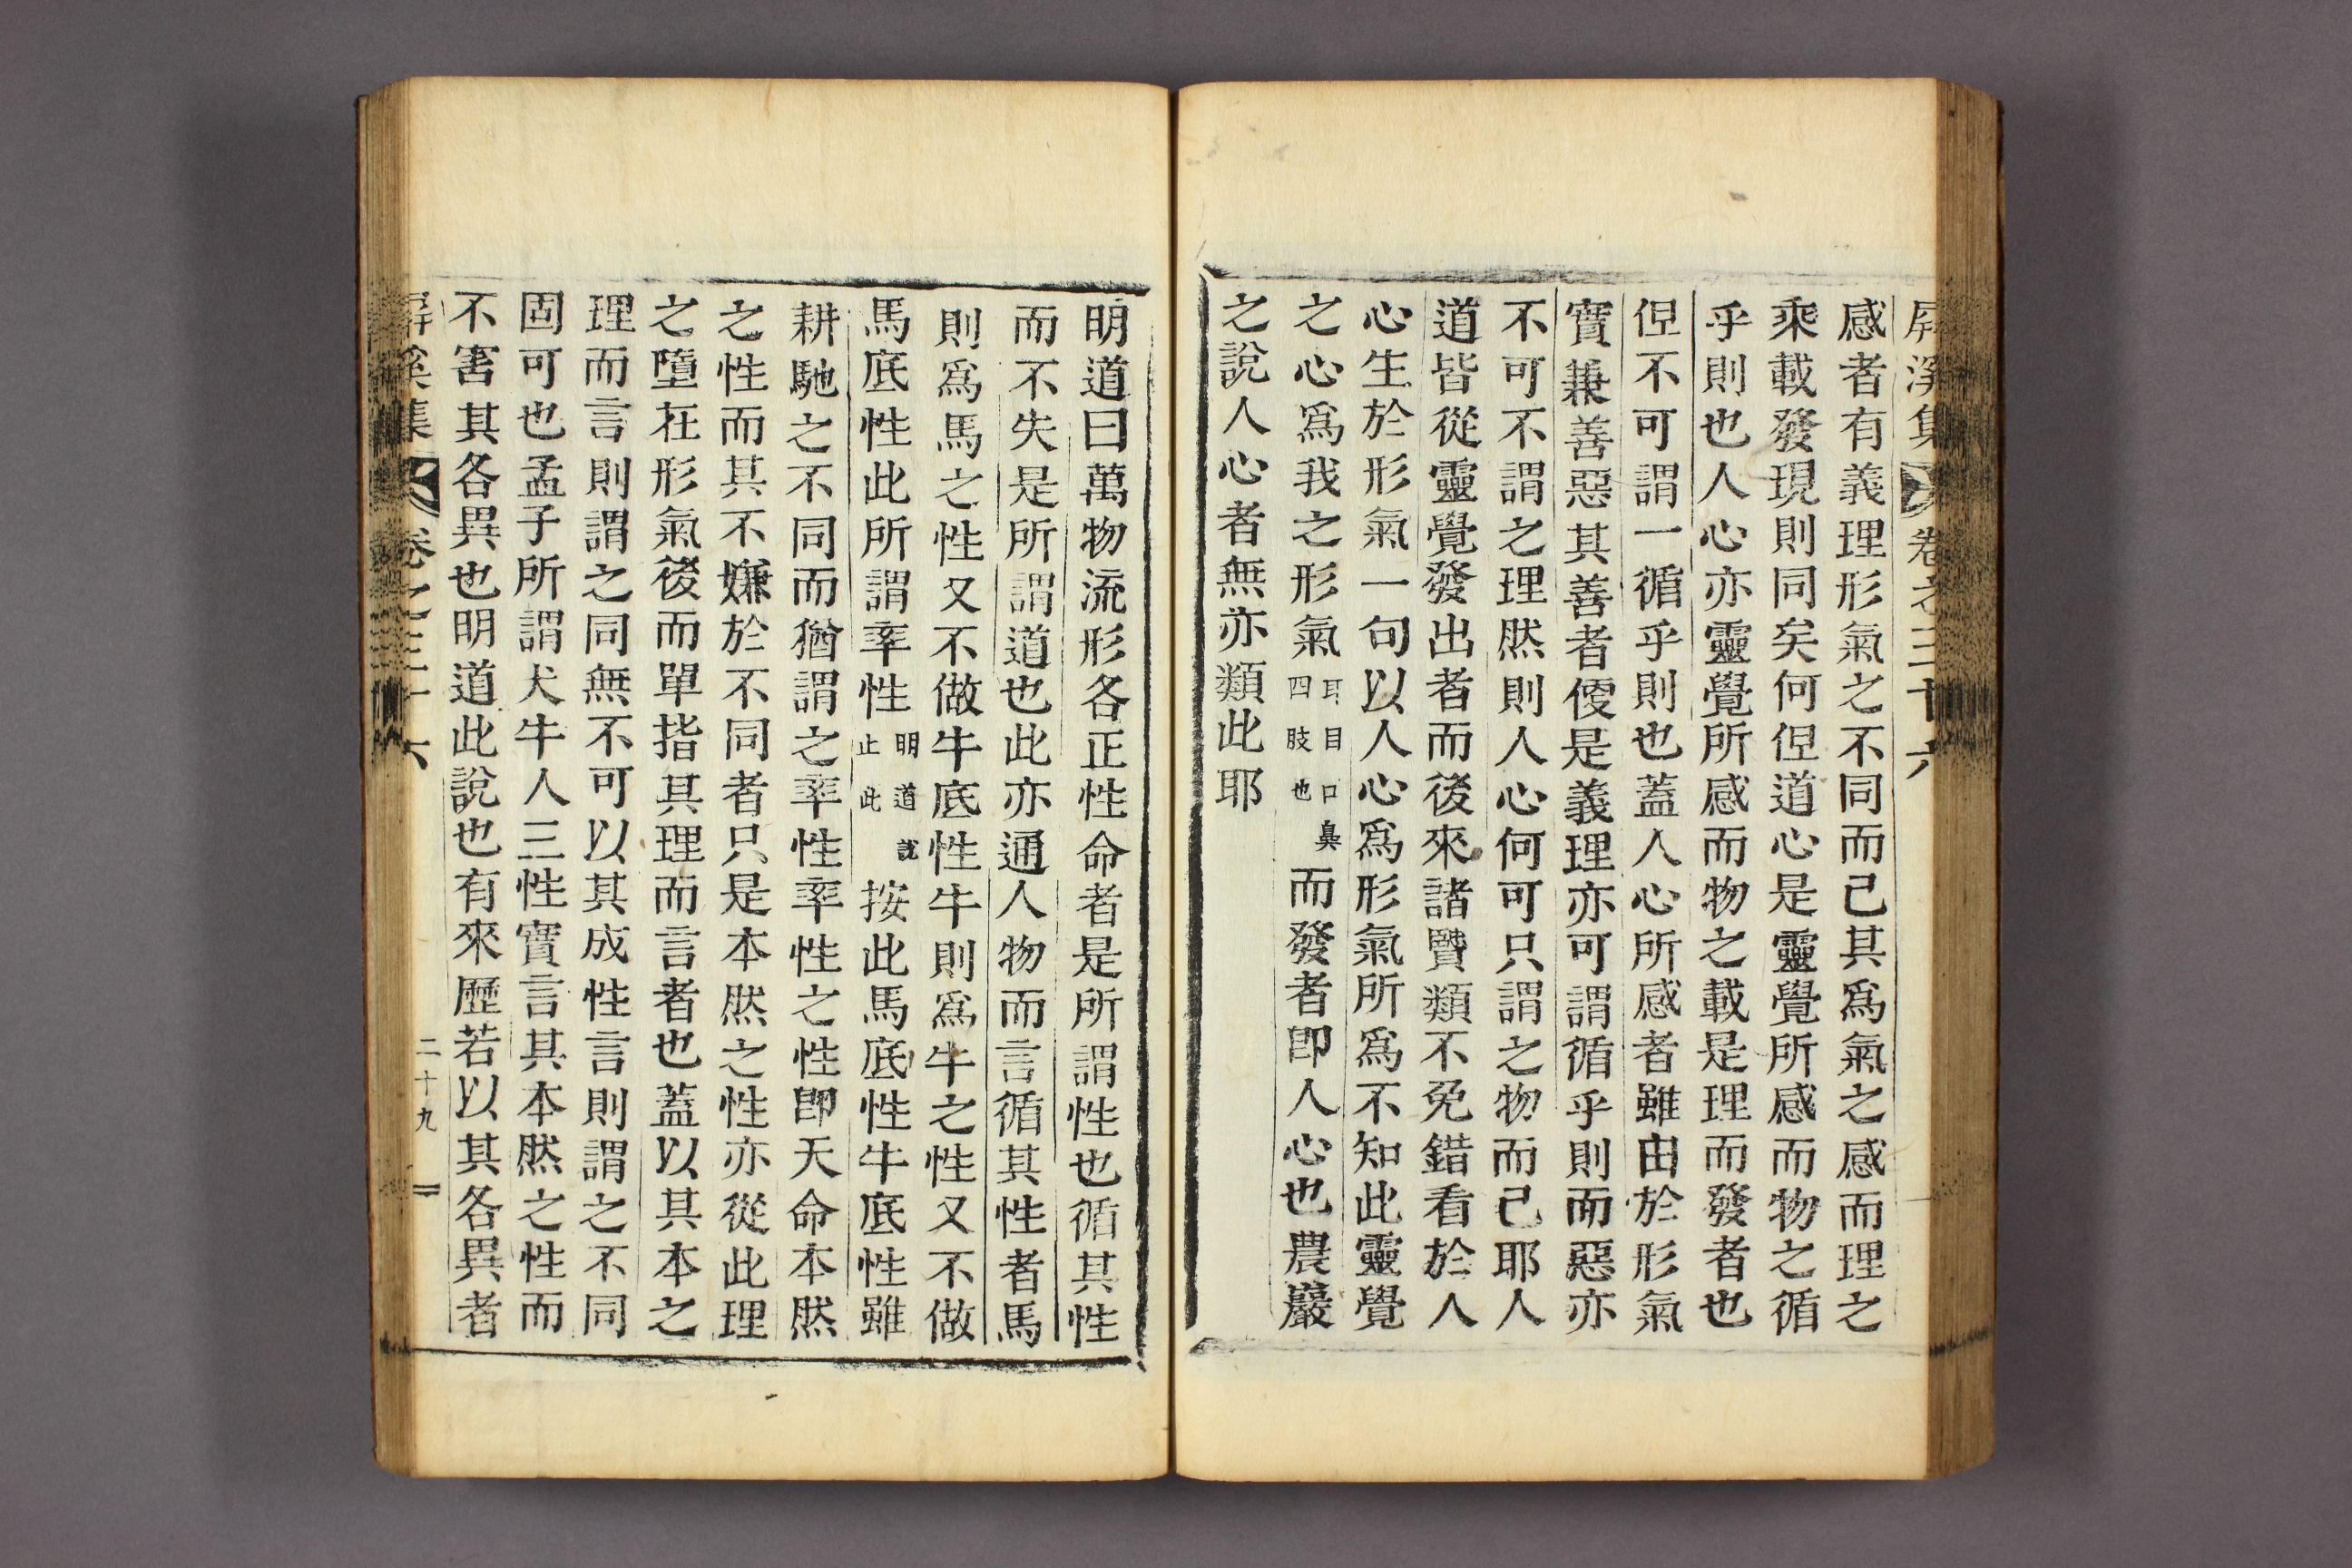 屛溪集 卷之三十六
感者有義理形氣之不同而已其爲氣之感而理之
乘載發現則同矣何但道心是靈覺所感而物之循
乎則也人心亦靈覺所感而物之載是理而發者也
但不可謂一循乎則也蓋人心所感者雖由於形氣
實兼善惡其善者便是義理亦可謂循乎則而惡亦
不可不謂之理然則人心何可只謂之物而已耶人
道皆從靈覺發出者而後來諸賢類不免錯看於人
心生於形氣一句以人心爲形氣所爲不知此靈覺
之心爲我之形氣耳目口鼻四肢也而發者卽人心也農巖
之說人心者無亦類此耶
明道曰萬物流形各正性命者是所謂性也循其性
而不失是所謂道也此亦通人物而言循其性者馬
則爲馬之性又不做牛底性牛則爲牛之性又不做
馬底性此所謂率性明道說止此按此馬底性牛底性雖
耕馳之不同而猶謂之率性率性之性卽天命本然
之性而其不嫌於不同者只是本然之性亦從此理
之墮在形氣後而單指其理而言者也蓋以其本之
理而言則謂之同無不可以其成性言則謂之不同
固可也孟子所謂犬牛人三性實言其本然之性而
不害其各異也明道此說也有來歷若以其各異者
屛溪集 卷之三十六 二十九